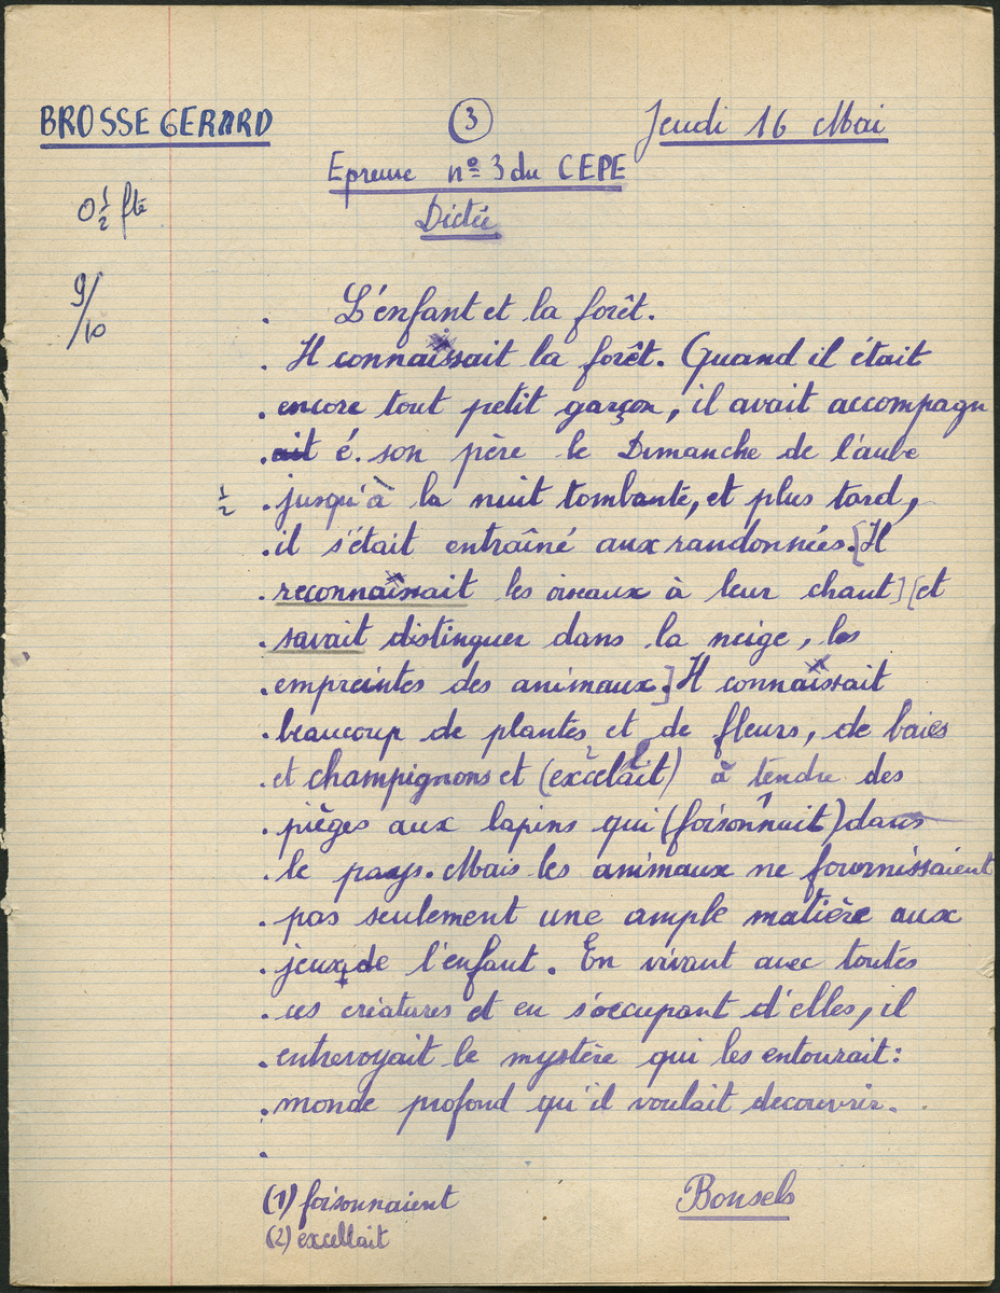 BROSSE GERARD
3
Jeudi 16 Mai
Epreuve nº 3 du CEPE
0 1/2 fte
Dictée
9/10
L'enfant et la forêt.
Il connaissait la forêt. Quand il était
encore tout petit garçon, il avait accompagn
ait é. son père le Dimanche de l'aube
1/2 jusqu'à la nuit tombante, et plus tard,
il s'était entraîné aux randonnées. [Il
reconnaissait les oiseaux à leur chant] [et
savait distinguer dans la neige, les
empreintes des animaux.] Il connaissait
beaucoup de plantes et de fleurs, de baies
et champignons et (excelait) à tendre des
2
1
pièges aux lapins qui (foisonnait) dans
le pays. Mais les animaux ne fournissaient
pas seulement une ample matière aux
jeux de l'enfant. En vivant avec toutes
ces créatures et en s'occupant d'elles, il
entrevoyait le mystère qui les entourait:
monde profond qu'il voulait decouvrir.
(1) foisonnaient
Bonsels
(2) excellait